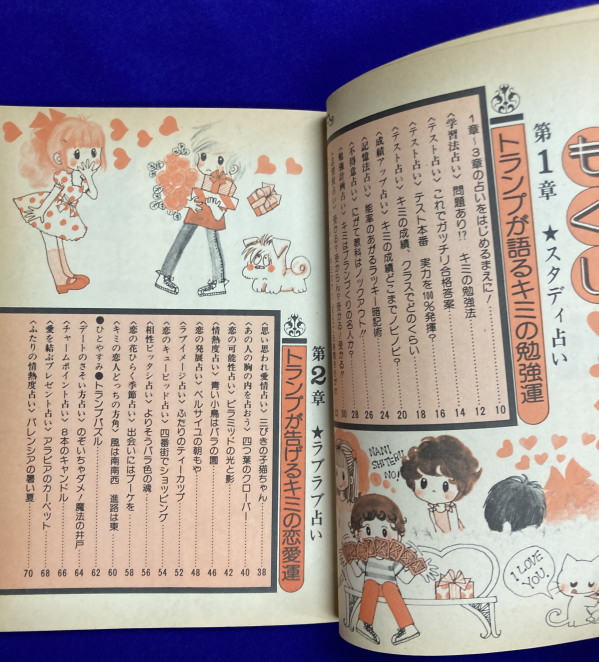 もくじ
第1章 ★スタディ占い
トランプが語るキミの勉強運
1章〜3章の占いをはじめるまえに！ 10
〈学習法占い〉 問題あり!? キミの勉強法 12
〈テスト占い〉 これでガッチリ合格答案 14
〈テスト占い〉 テスト本番 実力を100%発揮？ 16
〈テスト占い〉 キミの成績、クラスでどのくらい 18
〈成績アップ占い〉 キミの成績どこまでノビノビ？ 20
〈記憶法占い〉 能率のあがるラッキー暗記術 24
〈不得意占い〉 にがて教科はノックアウト!! 26
〈勉強計画占い〉 キミはプランづくりの名人か？ 28
30
NANI SHITERU NO!
I LOVE YOU.
第2章 ★ラブラブ占い
トランプが告げるキミの恋愛運
〈思い思われ愛情占い〉 三びきの子猫ちゃん 38
〈あの人の胸の内を占おう〉 四つ葉のクローバー 40
〈恋の可能性占い〉 ピラミッドの光と影 42
〈情熱度占い〉 青い小鳥はバラの園 46
〈恋の発展占い〉 ベルサイユの朝もや 48
〈ラブイメージ占い〉 ふたりのティーカップ 52
〈恋のキューピッド占い〉 四番街でショッピング 54
〈相性ピッタン占い〉 よりそうバラ色の魂 56
〈恋の花ひらく季節占い〉 出会いにはブーケを 58
〈キミの恋人どっちの方角〉 風は南南西 進路は東 60
●ひとやすみ●トランプパズル 62
〈デートのさそい方占い〉 のぞいちゃダメ！魔法の井戸 64
〈チャームポイント占い〉 8本のキャンドル 66
〈愛を結ぶプレゼント占い〉 アラビアのカーペット 68
〈ふたりの情熱度占い〉 バレンシアの暑い夏 70